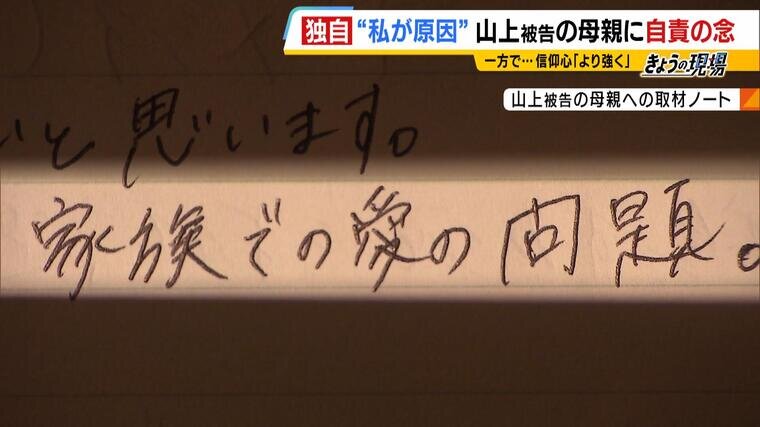 独自 “私が原因” 山上被告の母親に自責の念
一方で…信仰心「より強く」 きょうの現場
山上被告の母親への取材ノート
いと思います。
家族での愛の問題。